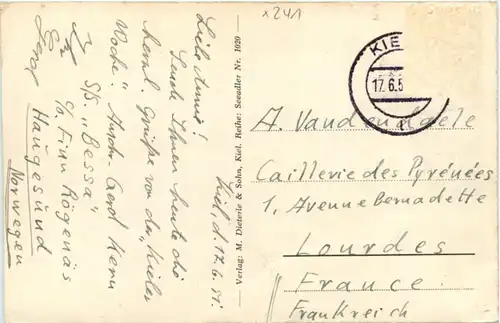 x241
Kiel, d. 17.6.51.
Liebe Annie!
Sende Ihnen heute die
herzl. Grüße von der „Kieler
Woche“ Ansch. Gerd Kern
S/S. „Bessa“
c/a Finn Rögenäs
Haugesund
Norwegen
Verlag: M. Dieterle & Sohn, Kiel. Reihe: Seeadler Nr. 1020
KIE
17.6.5
A. Vandendaele
Caillerie des Pyrénées
1, Avenue Bernadette
Lourdes
France
Frankreich